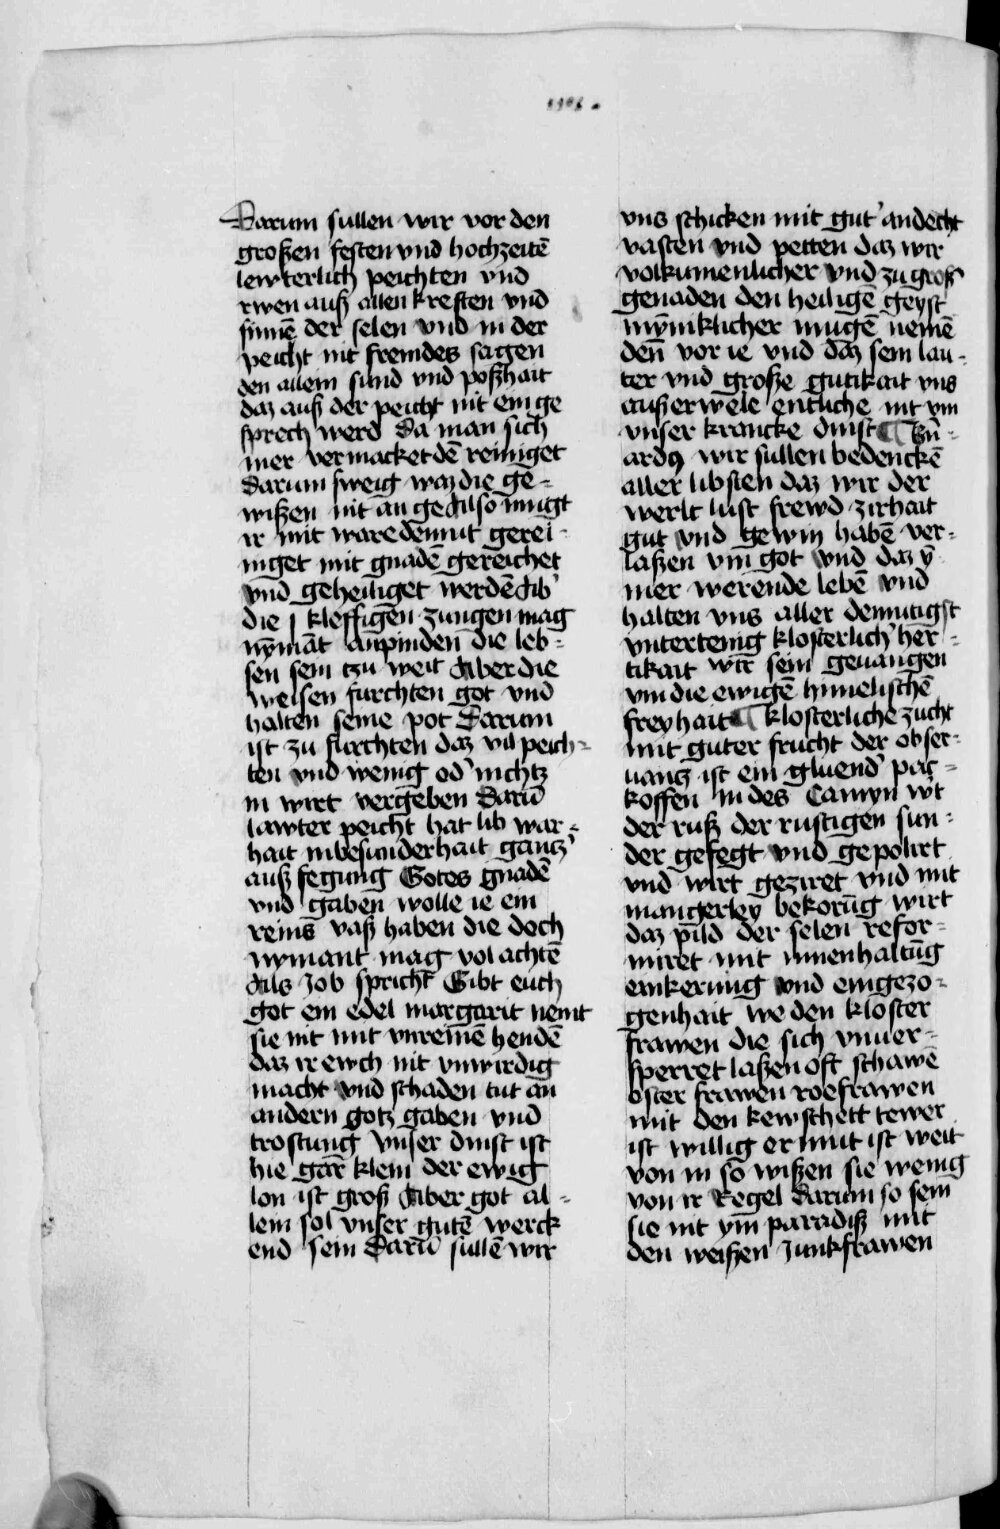 Darum sullen wir vor den
großen festen vnd hochzeitē
lewterlich peichten vnd
rwen auß allen kreften vnd
sinnē der selen vnd in der
peicht nit fremdes sagen
den allein sund vnd poßhait
daz auß der peicht nit ein ge
sprech werd Da man sich
mer vermacket dē reiniget
Darum sweig waz die ge-
wißen nit an get Also mugt
ir mit ware demut gerei-
niget mit gnadē gereichet
vnd geheiliget werdē Ab
die kleffigen zungen mag
nymāt anpinden die leb-
sen sein tzu weit Aber die
weisen furchten got vnd
halten seine pot Darum
ist zu furchten daz vil peich-
ten vnd wenig od' nichtz
in wirt vergeben Darū
lawter peicht hat lib war-
hait inbesunderhait gantz'
auß fegung Gotes gnadē
vnd gaben wolle ie ein
reins vaß haben die doch
nymant mag vol achtē
Als Job spricht Gibt euch
got ein edel margarit nemt
sie nit mit vnreinē hendē
daz ir ewch nit vnwirdig
macht vnd schaden tut an
andern gotz gaben vnd
trostung Vnser dinst ist
hie gar klein der ewig
lon ist groß Aber got al-
lein sol vnser gutē werck
end sein Darū sullē wir
vns schicken mit gut' andecht
vasten vnd petten daz wir
volkumenlicher vnd zu groß'
genaden den heiligē geyst
mynniklicher mugē nemē
den vor ie vnd daz sein lau-
ter vnd große gutikait vns
außerwele entliche nit vm
vnser krancke dinst
wir sullen bedenckē
aller libsten daz wir der
werlt lust frewd zirhait
gut vnd gewin habē ver-
laßen vm got vnd daz ȳ
mer werende lebē vnd
halten vns aller demutigst
vntertenig klosterlich' her-
tikait wir sein geuangen
vm die ewigē himelischē
freyhait klosterliche zucht
mit guter frucht der obser-
uantz ist ein gluend' pac-
koffen in des Camyn wt
der ruß der rustigen sun-
der gefegt vnd gepolirt
vnd wirt geziret vnd mit
mangerley bekorūg wirt
daz pild der selen refor-
miret mit innenhaltūg
einkerung vnd eingezo-
genhait we den kloster
frawen die sich vnuer-
sperret laßen oft schawē
oster frawen roefrawen
mit den kewschett tewer
ist willig er mut ist weit
von in so wißen sie wenig
von ir Regel Darum so sein
sie nit ym paradiß mit
den weißen Junkfrawen